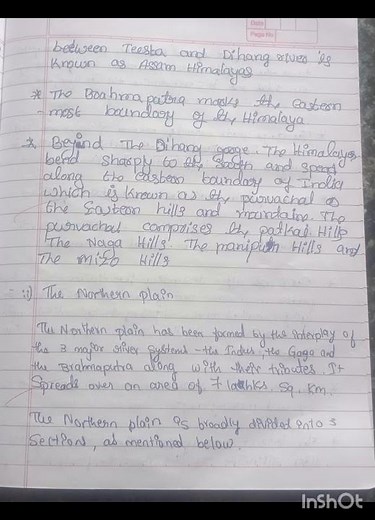 Date
Page No
between Teesta and Dihang river is
known as Assam Himalayas
* The Brahmaputra marks the Eastern
-most boundary of the Himalaya
* Beyond The Dihang gorge. The Himalayas
bend sharply to the South and spread
along the Eastern boundary of India
which is known as the purvachal or
the Eastern hills and mountains. The
purvachal comprises the patkai Hills
The Naga Hills. The manipuri Hills and
The mizo Hills
ii) The Northern plain
The Northern plain has been formed by the interplay of
the 3 major river systems - the Indus, the Ganga and
the Brahmaputra along with their tributes. It
Spreads over an area of 7 lakhks. Sq. Km.
The Northern plain is broadly divided into 3
Sections, as mentioned below.
InShOt